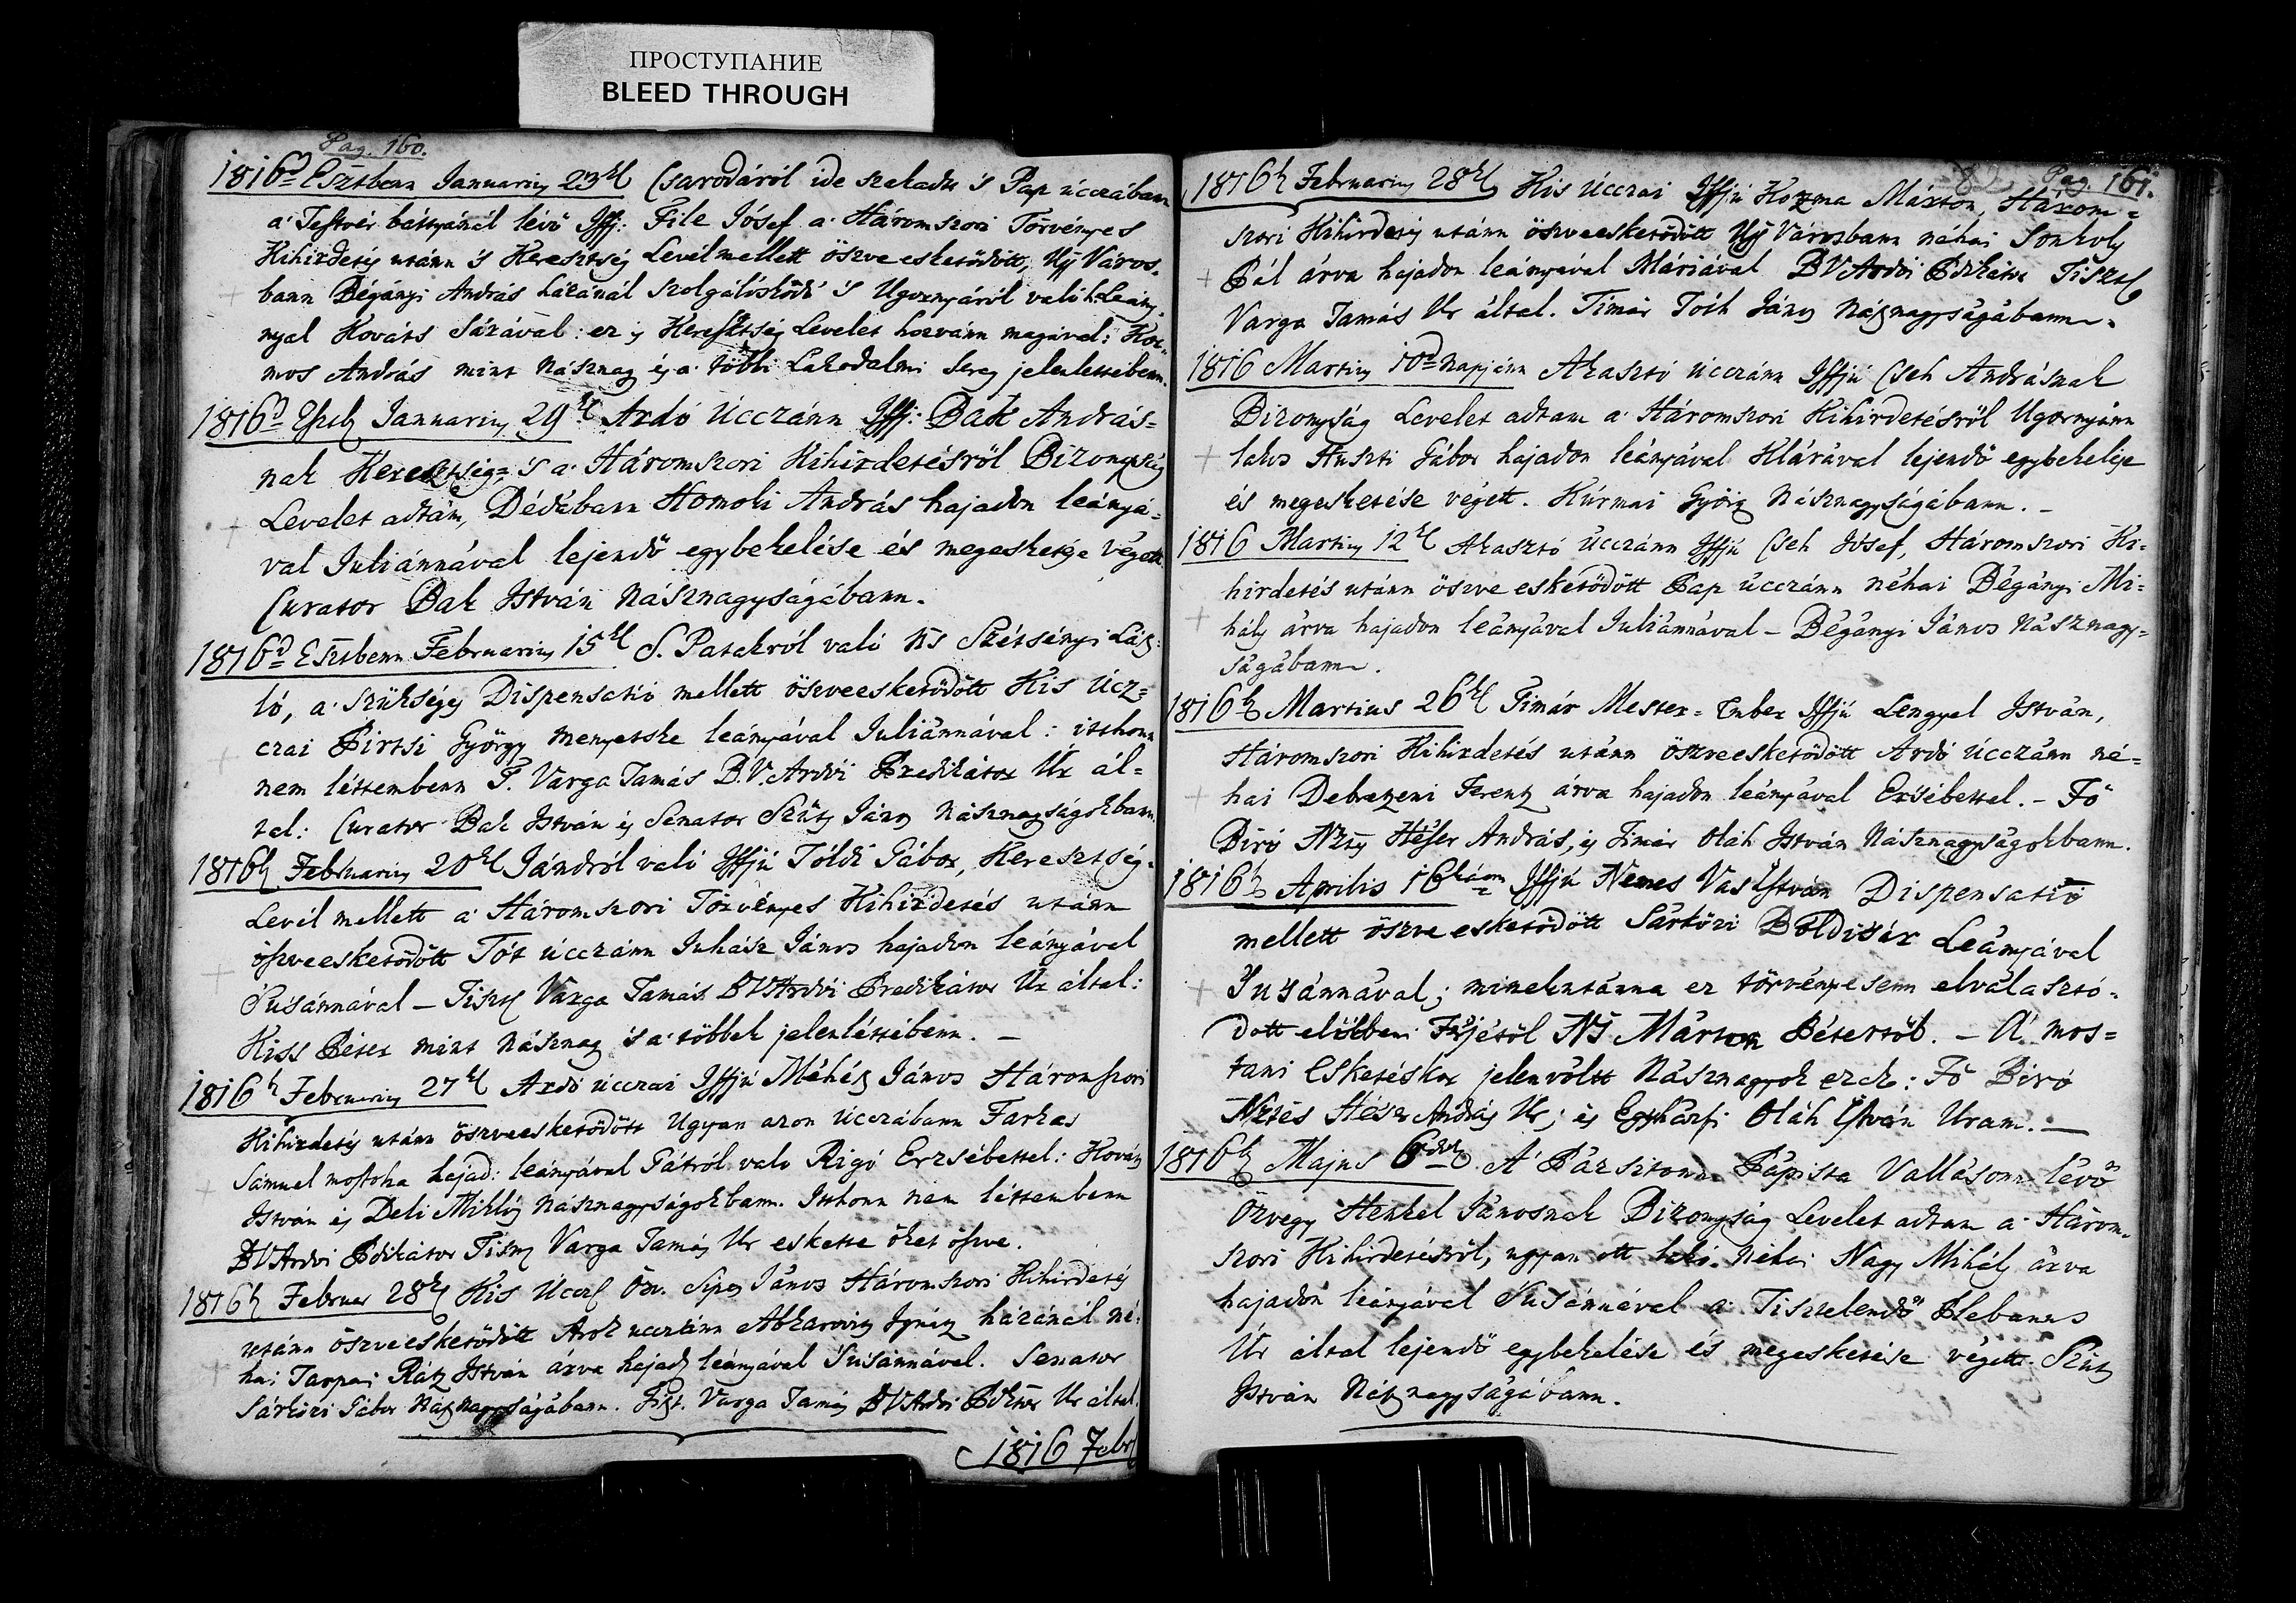 ПРОСТУПАНИЕ
BLEED THROUGH
Pag. 160.
1816d Esztbenn Januarius 23k Csarodáról ide szakadu 's Pap úcczábann
a' Testvér báttyánál lévő Iffj: File Jósef a' Háromszori Törvényes
Kihirdetés utánn 's Keresztség Levél mellett öszve esketődött, Uj Város-
bann Bégányi András házánál szolgálóskodó 's Ugornyáról való Leány-
nyal Kováts Sárával: ez is Keresztség Levelet hozvánn magával: Kor-
mos András mint Násznagy és a' többi Lakodalmi sereg jelenlettébenn.
1816d Eszt Januarius 29k Ardó Úcczánn Iffj: Bak András-
nak Keresztség= 's a' Háromszori Kihirdetésről Bizonyság
Levelet adtam, Dédábann Homoki András hajadon leányá-
val Juliánnával lejendő egybekelése és megesketése végett
Curator Bak István Násznagyságábann.
1816d Esztbenn Februarius 15k S. Patakról való Ns Szétsényi Lász-
ló, a' szükséges Dispensatió mellett öszveesketődött Kis Úcz=
czai Pirtsi György menyetske leányával Juliánnával: itthonn
nem léttembenn T. Varga Tamás B.V. Ardói Predikátor Úr ál=
tal: Curator Bak István és Senator Szűts János Násznagyságokbann.
1816k Februarius 20k Jándról való Iffjú Tóldi Gábor, Keresztség-
Levél mellett a' Háromszori Törvényes Kihirdetés utánn
öszveesketődött Tót úcczánn Juhász János hajadon leányával
'Susánnával – Tiszt Varga Tamás BVArdói Predikátor Úr által:
Kiss Péter mint Násznagy 's a' többek jelenléttébenn. –
1816k Februarius 27k Ardó úcczai Iffjú Méhés János Háromszori
Kihirdetés utánn öszveesketődött Ugyan azon Úcczábann Farkas
Sámuel mostoha hajad: leányával Gátról való Rigó Erzsébettel: Kováts
István és Deli Miklós Násznagyságokbann. Itthonn nem léttembenn
BVArdói Pdikátor Tisz Varga Tamás Ur eskette őket öszve.
1816k Februar 28k Kis Úccz Öz. Sipos János Háromszori Kihirdetés
utánn öszveesketődött Arok ucczánn Abkarovits Ignátz házánál né-
hai Tarpai Rátz István árva hajad leányával 'Susánnával. Senator
Sárközi Gábor Násznagyságábann. Tiszt. Varga Tamás BVArdói Pdkátor Ur által.
1816 Febr
Pag. 161.
1816k Februarius 28k Kis Úcczai Iffjú Kozma Márton, Három=
szori Kihirdetés utánn öszveesketődött Uj Városbann néhai Sonkoly
Pál árva hajadon leányával Máriával BVArdói Pdikátor Tiszt
Varga Tamás Ur által. Tímár Tóth János Násznagyságábann.
1816 Martius 10d Napjánn Akasztó Úcczánn Iffjú Cseh Andrásnak
Bizonyság Levelet adtam a' Háromszori Kihirdetésről Ugornyánn
lakos Huszti Gábor hajadon leányával Klárával lejendő egybekelése
és megesketése végett. Kúrmai György Násznagyságábann. –
1816 Martius 12k Akasztó Úcczánn Iffjú Cseh Jósef, Háromszori Ki-
hirdetés utánn öszve esketődött Pap úcczánn néhai Bégányi Mi=
hály árva hajadon leányával Juliánnával – Bégányi János Násznagy=
ságábann.
1816k Martius 26k Tímár Mester-Ember Iffjú Lengyel István,
Háromszori Kihirdetés utánn öszveesketődött Ardó Úcczánn né=
hai Debretzeni Ferentz árva hajadon leányával Ersébettel. – Fő
Biró Nztes Héser András, és Tímár Oláh István Násznagyságokbann.
1816k Aprilis 16kánn Iffjú Nemes Vas István Dispensatió
mellett öszve esketődött Sárközi Bóldisár Leányával
'Susánnával; minekutánna ez törvényesenn elválasztó-
dott előbbeni Férjétől NS Márton Pétertől. – A' mos=
tani Esketéskor jelenvóltt Násznagyok ezek: Fő Biró
Nztes Hészer András Ur, és Egyházfi Oláh István Uram. –
1816k Majus 6dik A' Pázsitonn Pápista Vallásonn lévő
Özvegy Henkel Jánosnak Bizonyság Levelet adtam a' Három-
szori Kihirdetésről, ugyan ott lakó néhai Nagy Mihály árva
hajadon leányával 'Susánnával a' Tisztelendő Plebanus
Úr által lejendő egybekelése és megesketése végett. Szűts
István Násznagyságábann.